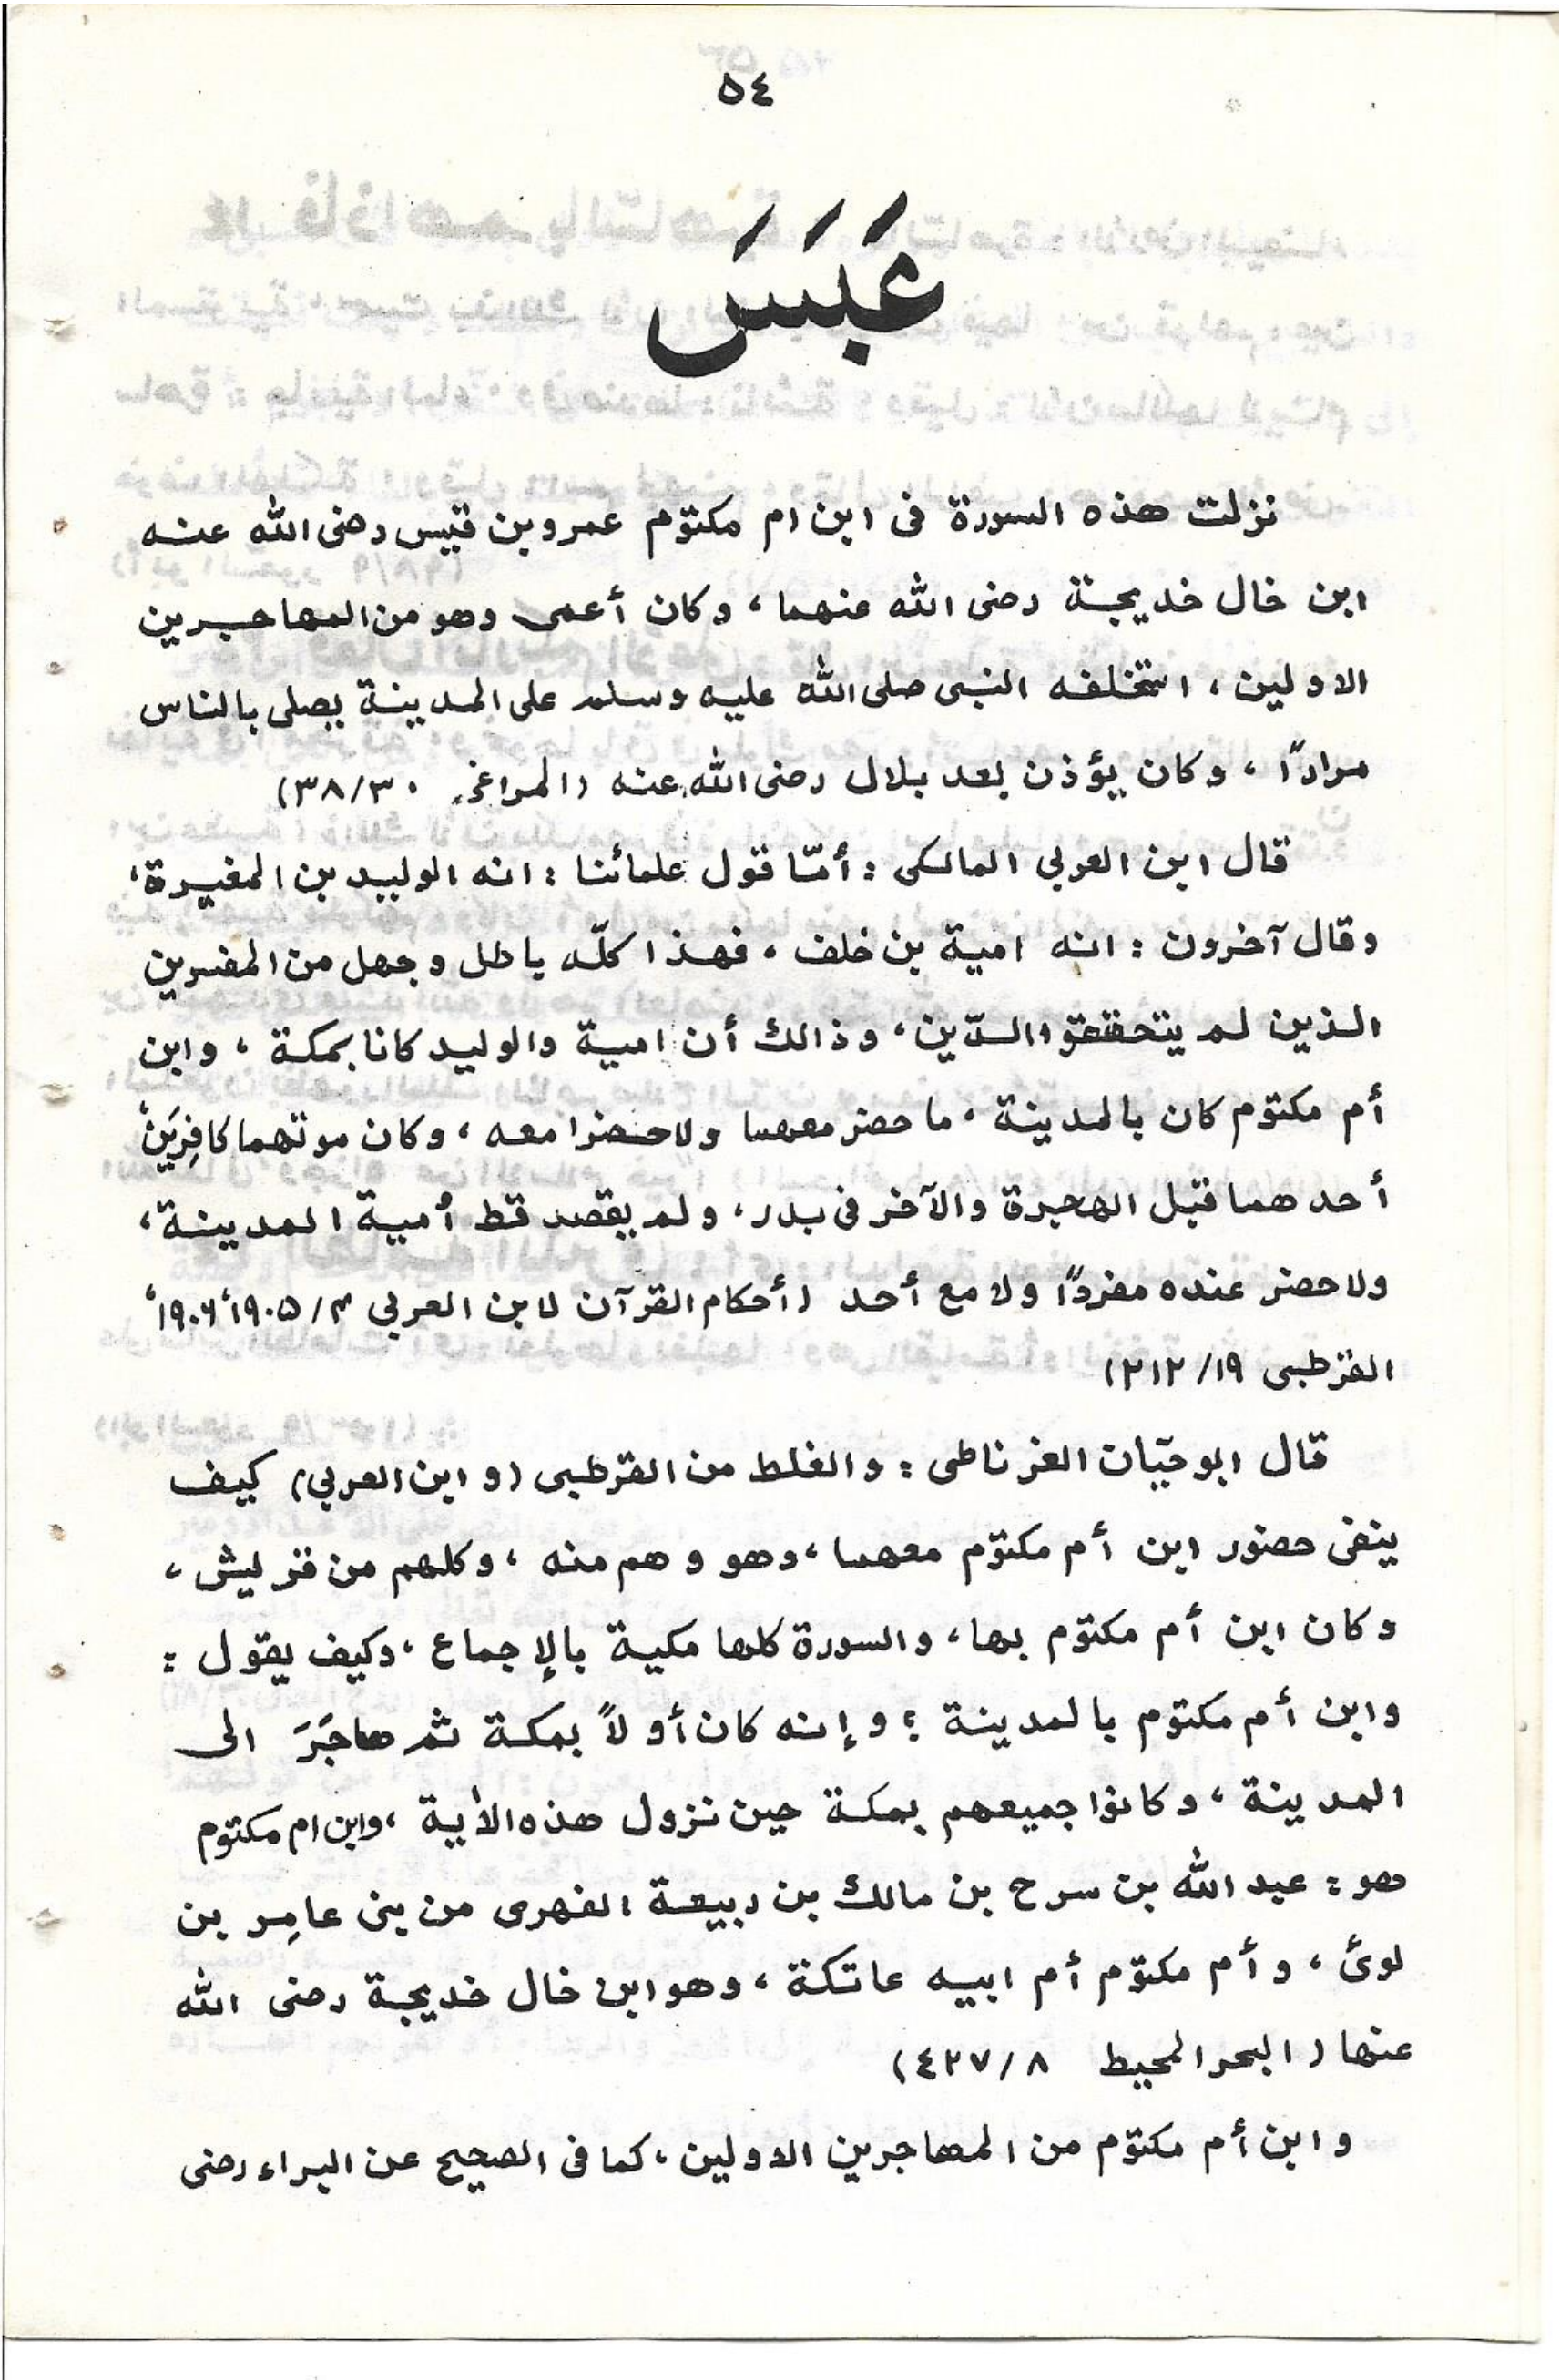 ٥٤
عَبَسَ
نزلت هذه السورة فى ابن ام مكتوم عمرو بن قيس رضى الله عنه
ابن خال خديجة رضى الله عنهما، وكان أعمى وهو من المهاجرين
الاولين، استخلفه النبى صلى الله عليه وسلم على المدينة يصلى بالناس
مرارًا، وكان يؤذن بعد بلال رضى الله عنه (المراغى ٣٨/٣٠)
قال ابن العربي المالكى: أمّا قول علمائنا: انه الوليد بن المغيرة،
وقال آخرون: انه امية بن خلف، فهذا كلّه باطل وجهل من المفسرين
الذين لم يتحققوا الدّين، وذالك أن امية والوليد كانا بمكة، وابن
أم مكتوم كان بالمدينة، ما حضر معهما ولا حضرا معه، وكان موتهما كافِرَين
أحدهما قبل الهجرة والآخر فى بدر، ولم يقصد قط أمية المدينة،
ولا حضر عنده مفردًا ولا مع أحد (أحكام القرآن لابن العربي ٤/١٩٠٥، ١٩٠٦،
القرطبى ١٩/٢١٢)
قال ابو حيّان الغرناطى: والغلط من القرطبى (و ابن العربي) كيف
ينفى حضور ابن أم مكتوم معهما، وهو وهم منه، وكلهم من قريش،
وكان ابن أم مكتوم بها، والسورة كلها مكية بالإجماع، وكيف يقول:
وابن أم مكتوم بالمدينة؟ وإنه كان أولاً بمكة ثم هاجَرَ الى
المدينة، وكانوا جميعهم بمكة حين نزول هذه الأية، وابن ام مكتوم
هو: عبد الله بن سرح بن مالك بن ربيعة الفهرى من بنى عامِر بن
لوئ، وأم مكتوم أم ابيه عاتكة، وهو ابن خال خديجة رضى الله
عنها (البحر المحيط ٨/٤٢٧)
وابن أم مكتوم من المهاجرين الاولين، كما فى الصحيح عن البراء رضى